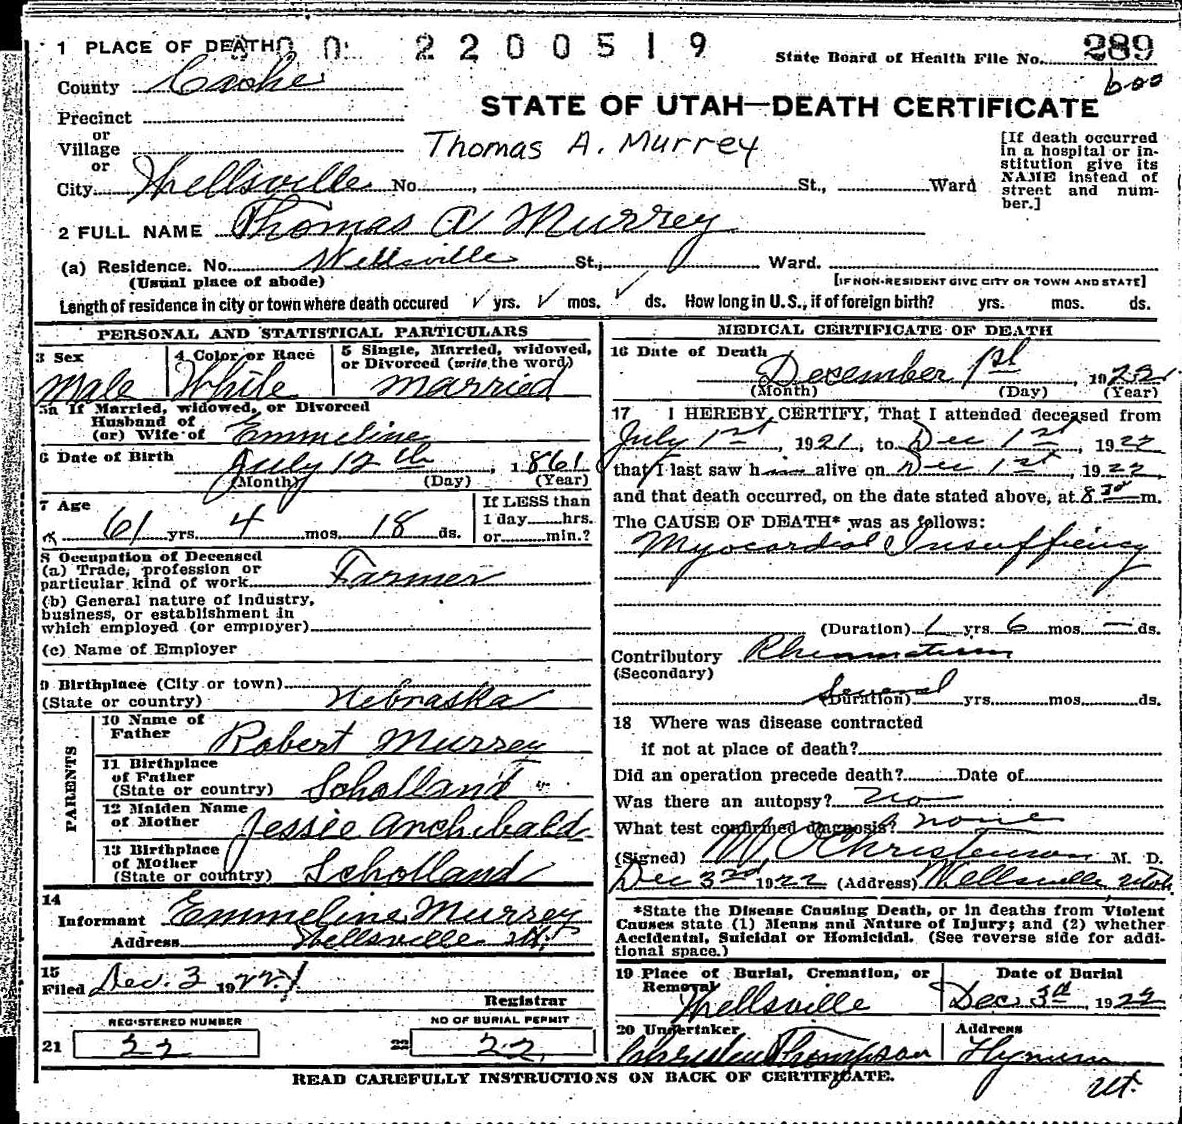 1 PLACE OF DEATH 2200519
State Board of Health File No. 289
County Cache 600
STATE OF UTAH—DEATH CERTIFICATE
Precinct
or
Village
Thomas A. Murrey
[If death occurred in a hospital or in-
stitution give its
NAME instead of
street and num-
ber.]
or
City Wellsville No. , St., Ward
2 FULL NAME Thomas A Murrey
(a) Residence. No. Wellsville St., Ward.
(Usual place of abode) [IF NON-RESIDENT GIVE CITY OR TOWN AND STATE]
Length of residence in city or town where death occured ✓ yrs. ✓ mos. ✓ ds. How long in U. S., if of foreign birth? yrs. mos. ds.
PERSONAL AND STATISTICAL PARTICULARS
3 Sex
Male
4 Color or Race
White
5 Single, Married, widowed,
or Divorced (write the word)
married
5a If Married, widowed, or Divorced
Husband of
(or) Wife of Emmeline
6 Date of Birth July 12th, 1861
(Month) (Day) (Year)
7 Age
61 yrs. 4 mos. 18 ds.
If LESS than
1 day hrs.
or min.?
8 Occupation of Deceased
(a) Trade, profession or
particular kind of work Farmer
(b) General nature of industry,
business, or establishment in
which employed (or employer)
(c) Name of Employer
9 Birthplace (City or town)
(State or country) Nebraska
PARENTS
10 Name of
Father Robert Murrey
11 Birthplace
of Father
(State or country) Schotland
12 Maiden Name
of Mother Jessie Archibald
13 Birthplace
of Mother
(State or country) Schotland
14
Informant Emmeline Murrey
Address Wellsville Ut
15
Filed Dec. 3 1922
Registrar
REGISTERED NUMBER
21 22
NO OF BURIAL PERMIT
22 22
MEDICAL CERTIFICATE OF DEATH
16 Date of Death
December 1st, 1922
(Month) (Day) (Year)
17 I HEREBY CERTIFY, That I attended deceased from
July 1st, 1921, to Dec 1st, 1922
that I last saw him alive on Dec 1st, 1922
and that death occurred, on the date stated above, at 8 30 m.
The CAUSE OF DEATH* was as follows:
Myocardial Insuffiency
(Duration) 1 yrs. 6 mos. — ds.
Contributory Rheumatism
(Secondary)
Several
(Duration) yrs. mos. ds.
18 Where was disease contracted
if not at place of death?
Did an operation precede death? Date of
Was there an autopsy? no
What test confirmed diagnosis? none
(Signed) Christenson M. D.
Dec 3rd 1922 (Address) Wellsville Utah
*State the Disease Causing Death, or in deaths from Violent
Causes state (1) Means and Nature of Injury; and (2) whether
Accidental, Suicidal or Homicidal. (See reverse side for addi-
tional space.)
19 Place of Burial, Cremation, or
Removal
Wellsville
Date of Burial
Dec. 3rd 1922
20 Undertaker
Thompson
Address
Hyrum
Ut.
READ CAREFULLY INSTRUCTIONS ON BACK OF CERTIFICATE.